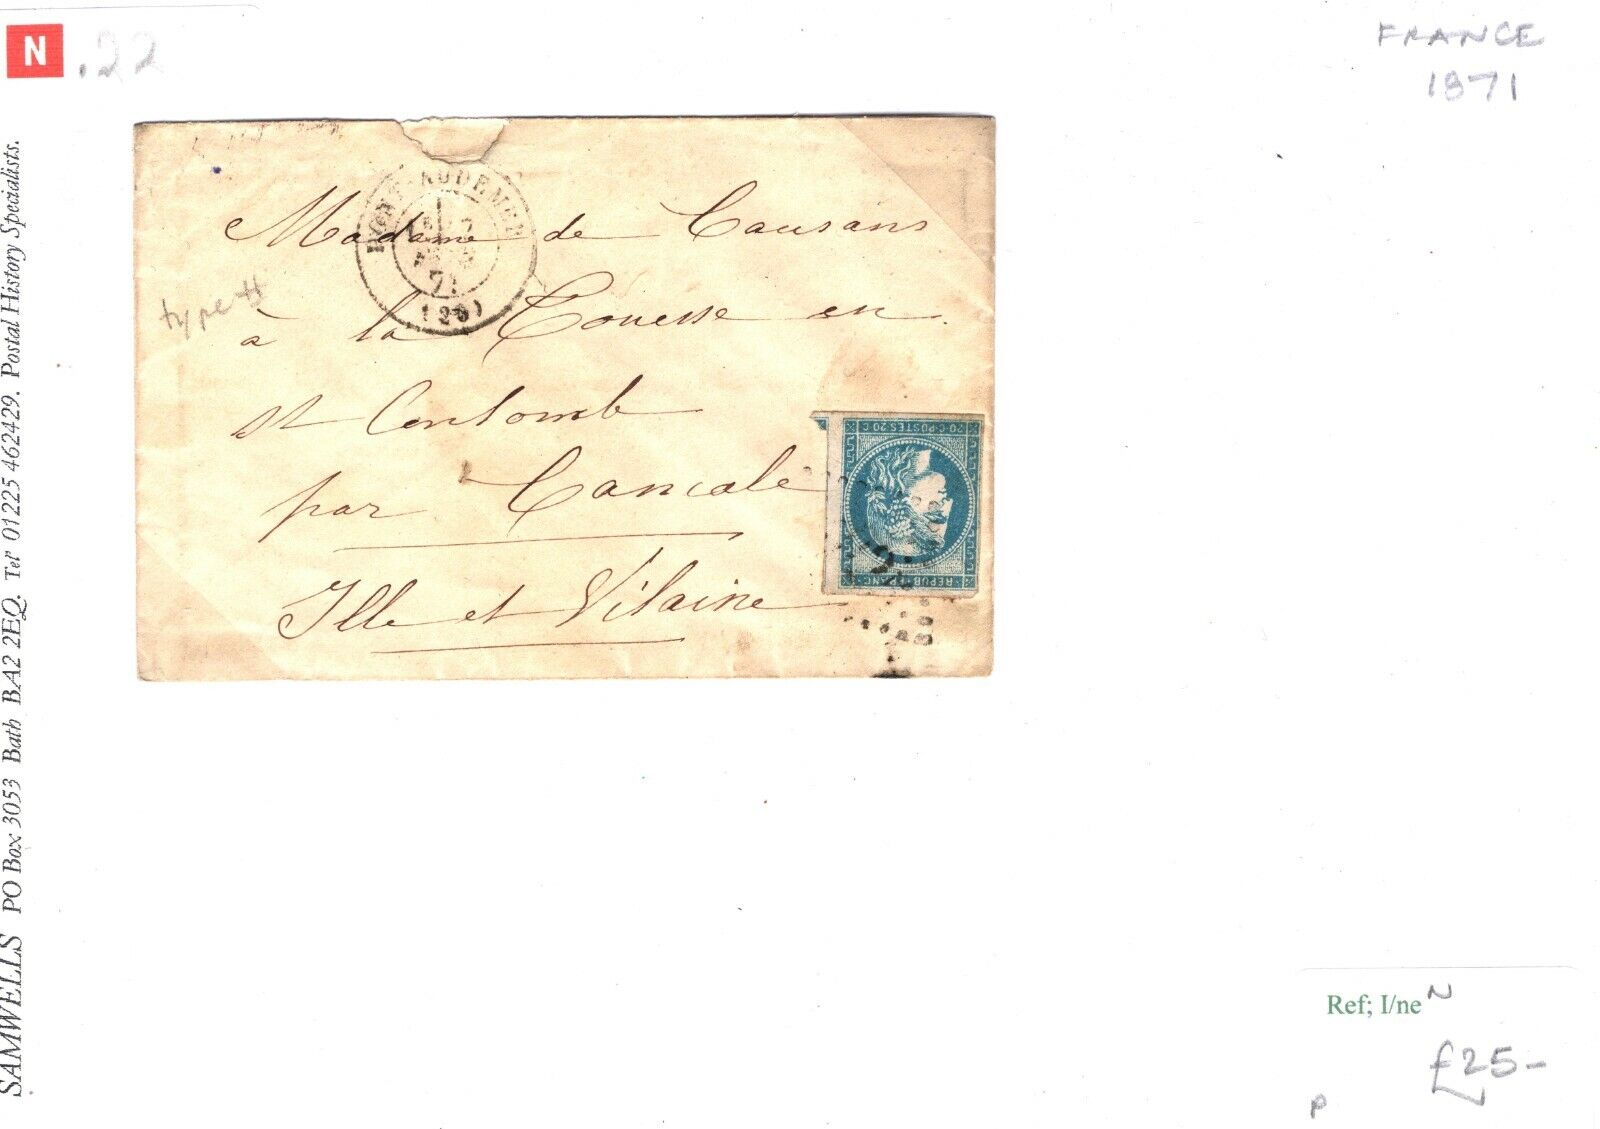 N .22
FRANCE
1871
SAMWELLS PO Box 3053 Bath BA2 2EQ. Tel' 01225 462429. Postal History Specialists.
PONT-AUDEMER
71
Madame de Causans
type II
à la Touesse en
St Coulomb
par Cancale
Ille et Vilaine
20·C·POSTES 20 C
REPUB·FRANC·
Ref; I/ne N
£25-
P